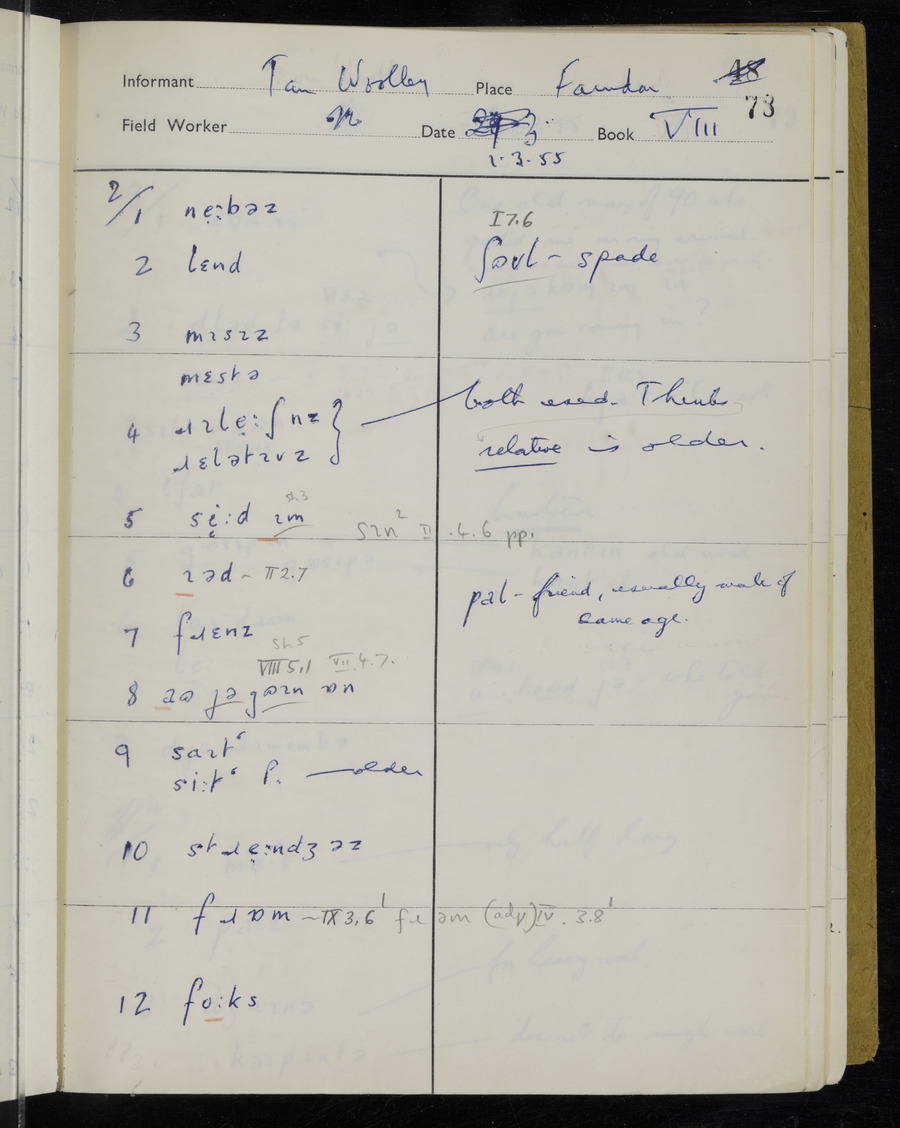 Informant Tan Woolley Place Farndon 48
73
Field Worker Date Book VIII
1.3.55
2/1 nẹːbəz
I 7.6
2 lɛnd
ʃɒʊl – spade
3 mɪsɪz
mɛstə
4 ɹɪlẹːʃnz } both used. Thinks
ɹɛlətɪvz relative is older.
sh 3
5 sẹːd ɪm
sɪn² II .4.6 pp.
6 ɪəd ~ II 2.7
pal – friend, usually male of
same age.
7 fɹɛnz
sh 5
VIII 5,1 VII.4.7.
8 aɷ jə gɷɪn ɒn
9 saɪtʻ
siːtʻ P. — older
10 stɹẹːndʒəz
11 fɹɒm ~ IX 3,6¹ fɹəm (adv) IV . 3.8¹
12 foːks